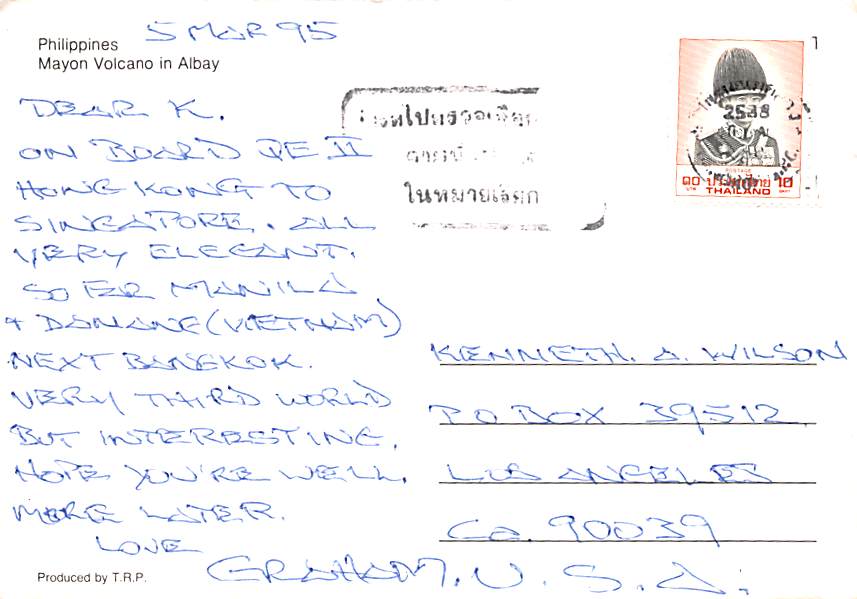 5 MAR 95
Philippines
Mayon Volcano in Albay
DEAR K.
ON BOARD QE II
HONG KONG TO
SINGAPORE. ALL
VERY ELEGANT.
SO FAR MANILA
+ DANANG (VIETNAM)
NEXT BANGKOK.
VERY THIRD WORLD
BUT INTERESTING.
HOPE YOU'RE WELL.
MORE LATER.
LOVE
GRAHAM.
Produced by T.R.P.
ในหมายเลือก
2538
POSTAGE
๑๐ ประเทศไทย 10
บาท THAILAND BAHT
KENNETH. A. WILSON
P O BOX 39512
LOS ANGELES
Ca. 90039
U.S.A.